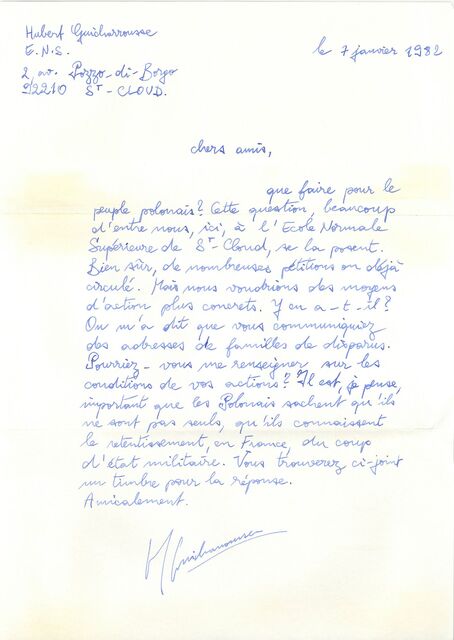 Hubert Guicharrousse
E.N.S.
2, av. Pozzo-di-Borgo
92210 ST-CLOUD.
le 7 janvier 1982
chers amis,
que faire pour le
peuple polonais? Cette question, beaucoup
d'entre nous, ici, à l'Ecole Normale
Supérieure de ST-Cloud, se la posent.
Bien sûr, de nombreuses pétitions on déjà
circulé. Mais nous voudrions des moyens
d'action plus concrets. Y en a-t-il?
On m'a dit que vous communiquiez
des adresses de familles de disparus.
Pourriez-vous me renseigner sur les
conditions de vos actions? Il est, je pense,
important que les Polonais sachent qu'ils
ne sont pas seuls, qu'ils connaissent
le retentissement, en France, du coup
d'état militaire. Vous trouverez ci-joint
un timbre pour la réponse.
Amicalement.
H Guicharrousse